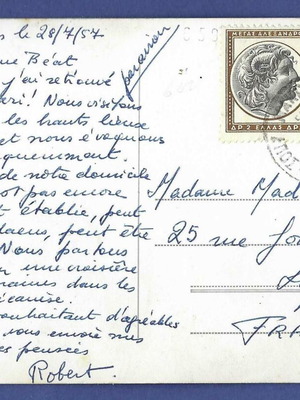 s le 28/7/57
que Béat
j'ai retrouvé
ri ! Nous visitons
les hauts lieux
et nous évoquons
quemment.
de notre domicile
ot pas encore
t établie, peut
peut être
Nous partons
une croisière
dans les
souhaitant d'agréables
vous envoie mes
es pensées
Robert.
par avion
ΜΕΓΑΣ ΑΛΕΞΑΝΔΡ
ΔΡ. 2 ΕΛΛΑΣ ΔΡ.
Madame Mad
25 rue
FRA